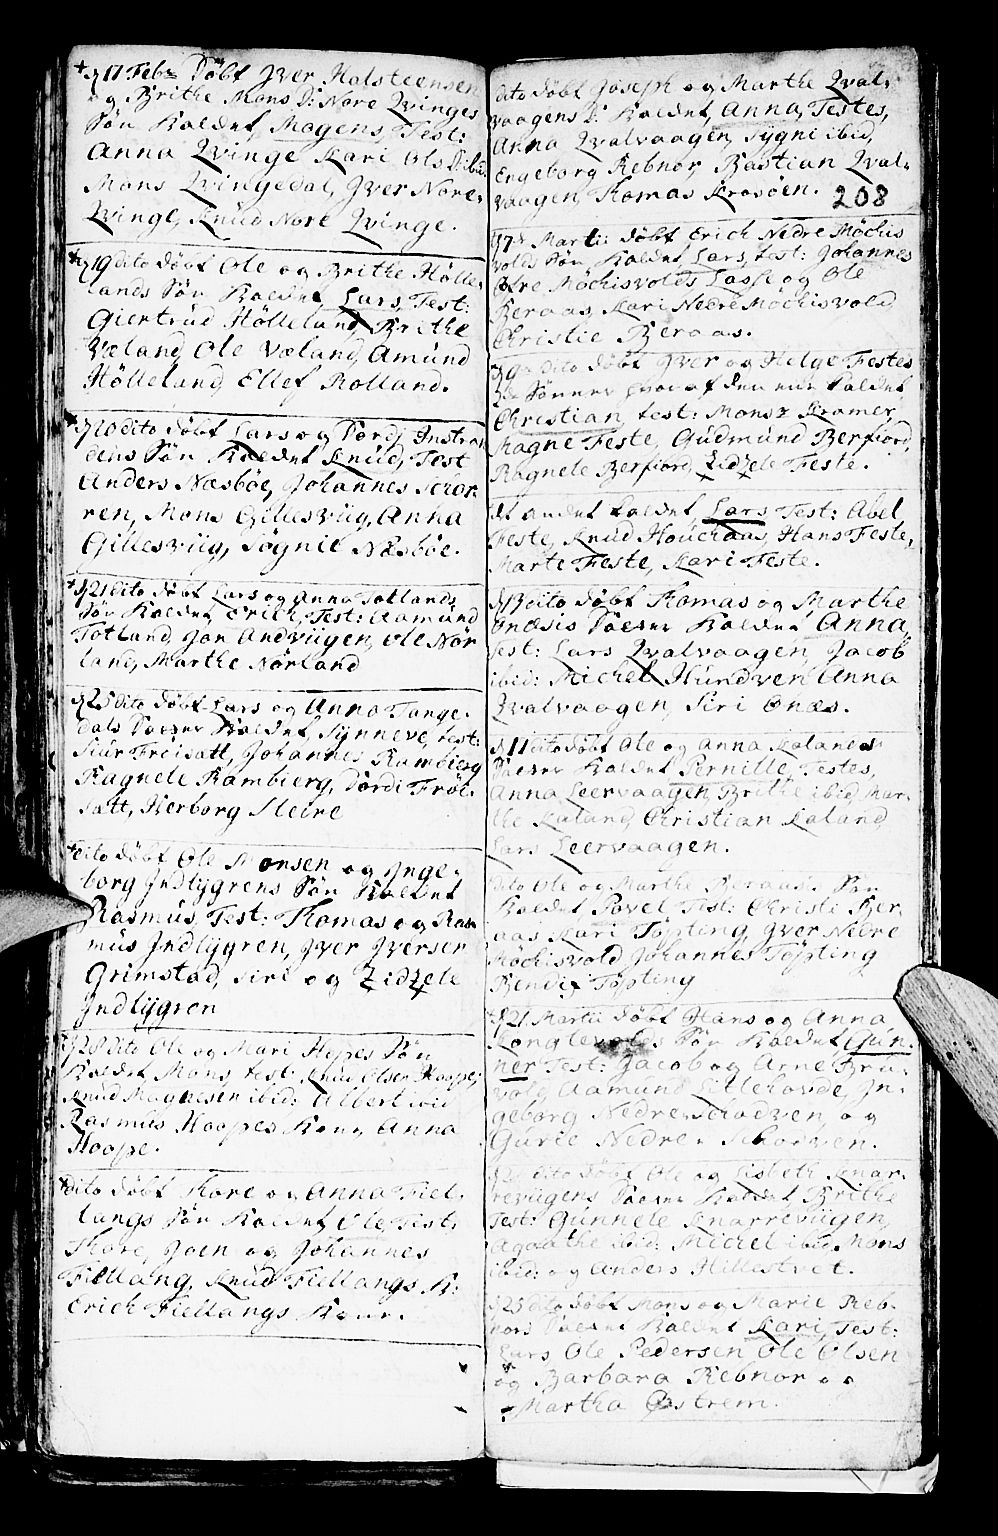 + d 17 Febr Döbt Jver Holsteensen
og Brithe Mons D: Nore Qvinges
Sön Kaldet, Mogens, Test:
Anna Qvinge Kari Ols D: ibid
Mons Qvingedal, Jver Nore-
Qvinge, Knud Nore Qvinge.
d 19 dito Döbt Ole og Brithe Hölle-
lands Sön Kaldet Lars, Test:
Giertrud Hölleland, Brithe
Væland, Ole Væland, Amund
Hölleland, Ellef Rolland.
d 20 dito Döbt Lars og Dordj Instra
dens Sön Kaldet Knud, Test
Anders Næsböe, Johannes
ren, Mons Gillesviig, Anna
Gillesviig, Sögnil Næsböe.
+ d 21 dito Döbt Lars og Anna Totlands
Sön Kaldet Erich, Test: Aamund
Totland, Jon Andviigen, Ole Nör
land, Marthe Nörland
d 25 dito Döbt Lars og Anna Tange-
dals Daatter Kaldet, Synneve, test:
Siur Fröisatt, Johannes Rambierg
Ragnele Rambierg, Dordi Fröi-
satt, Herborg Sleire
+ dito Döbt Ole Monsen og Inge-
borg Indlygrens Sön Kaldet
Rasmus, Test: Thomas og Ras
mus Indlygren, Jver Jversen
Grimstad, Siri og Zidzele
Indlygren
d 28 dito Ole og Mari Hopes Sön
Kaldet Mons, test: Knud Olsen Hoope,
Knud Magnesen ibid: Albert ibid
Rasmus Hoopes Kone, Anna
Hoope.
+ dito Döbt Thore og Anna Fiel-
langs Sön Kaldet Ole, Test:
Thore, Joen og Johannes
Fiellang, Knud Fiellangs K:
Erich Fiellangs Kone.
dito Döbt Joseph og Marthe Qval-
vaagens D: Kaldet, Anna, Testes,
Anna Qvalvaagen, Sygni ibid,
Engeborg Rebnor, Bastian Qval-
vaagen, Thomas Krosöen. 208
d 7 Martii Döbt Erich Nedre Möchis
volds Sön Kaldet Lars, test: Johannes
Öfre Möchisvold, Lasse og Ole
Beraas, Kari Nedre Möchisvold
Christie Beraas.
d 9 dito Döbt Jver og Helge Festes
2de Sönner hvor af den eene Kaldet
Christian, test: Mons Kramer,
Magne Feste, Gudmund Berfiord,
Ragnele Berfiord, Zidzele Feste.
det andet Kaldet Lars Test: Abel
Feste, Knud Houchaas, Hans Feste,
Marte Feste, Kari Feste.
d 13 dito Döbt Thomas og Marthe
Onæsis Daatter Kaldet Anna,
Test: Lars Qvalvaagen, Jacob
ibid: Michel Hundven Anna
Qvalvaagen, Siri Onæs.
d 17 dito Döbt Ole og Anna Kalands
Daatter Kaldet Pernille, Testes,
Anna Leervaagen, Brithe ibid, Mar-
the Kaland, Christian Kaland,
Lars Leervaagen.
dito Ole og Marthe Beraas. Sön
Kaldet Povel Test: Christi Ber-
aas Kari Töpting, Jver Nedre
Möchisvold, Johannes Töpting
Bendix Töpting
d 21 Martii Döbt Hans og Anna
Konglevolds Sön Kaldet, Gun-
ner Test: Jacob og Arne Bru-
vold, Aamund Lillehovde, In-
geborg Nedre Schodven, og
Gurie Nedre Schodven.
dito Döbt Ole og Lisbeth Knar-
reviigens Daatter Kaldet Brithe
Test: Gunnele Knarreviigen,
Agaathe ibid: Michel ibid, Mons
ibid: og Anders Hillestvet.
d 25 dito Döbt Mons og Marie Reb-
nors Daatter Kaldet Kari, Test:
Lars Ole Pedersen Ole Olsen
og Barbara Rebnor og
Martha Östrem.